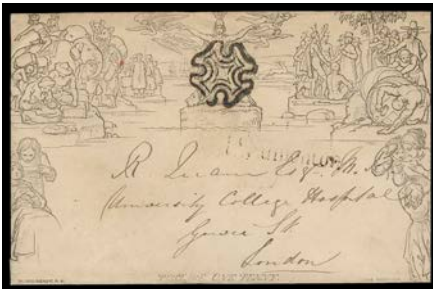 R. Quain Esq. M.
University College Hospital
Gower St
London
POSTAGE ONE PENNY